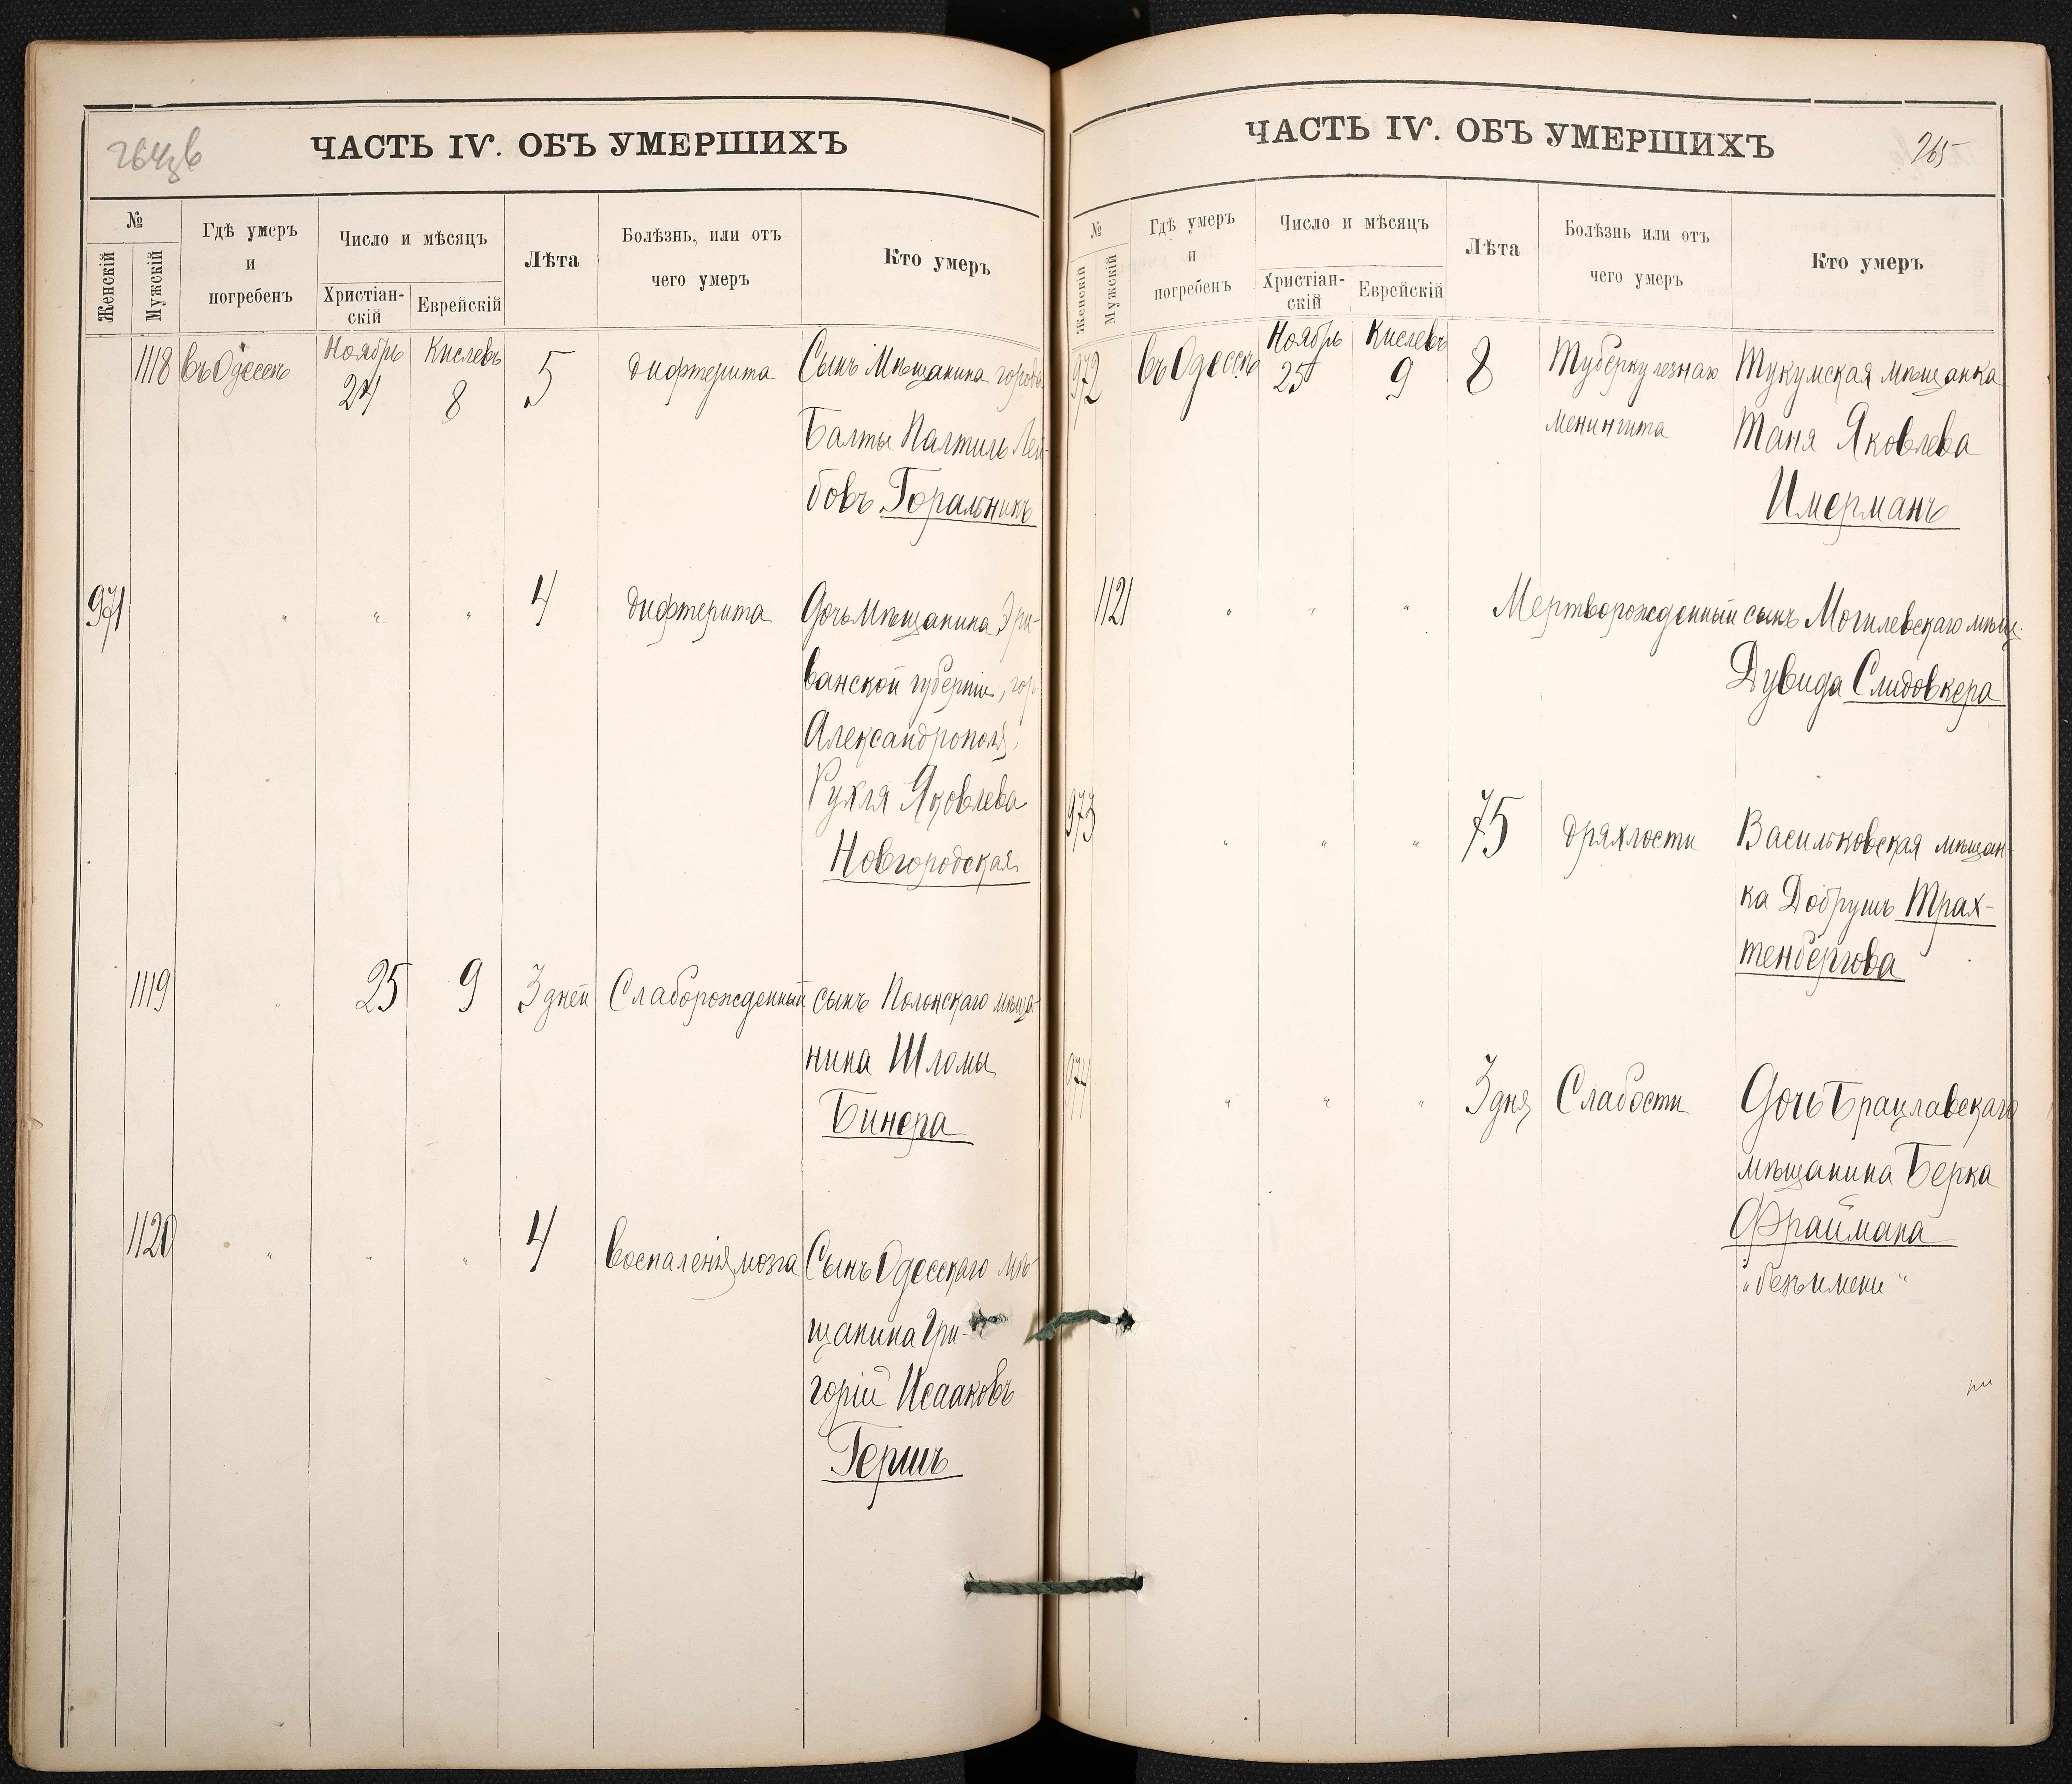 ЧАСТЬ IV. ОБЪ УМЕРШИХЪ
№
Женскій
Мужскій
Гдѣ умеръ
и
погребенъ
Число и мѣсяцъ
Христіан-
скій
Еврейскій
Лѣта
Болѣзнь, или отъ
чего умеръ
Кто умеръ
1118 въ Одессѣ Ноябрь 24 Кислевъ 8 5 дифтерита Сынъ Мѣщанина города
Балты Палтиль Лей-
бовъ Горальникъ
971 " " " 4 дифтерита Дочь Мѣщанина Эри-
ванской губерніи, гор.
Александрополя,
Рухля Яковлева
Новгородская
1119 " 25 9 3 дней Слаборожденный сынъ Полонскаго мѣща-
нина Шломы
Бинера
1120 " " " 4 воспаленія мозга Сынъ Одесскаго мѣ-
щанина Гри-
горій Исааковъ
Гершъ
ЧАСТЬ IV. ОБЪ УМЕРШИХЪ
265
№
Женскій
Мужскій
Гдѣ умеръ
и
погребенъ
Число и мѣсяцъ
Христіан-
скій
Еврейскій
Лѣта
Болѣзнь или отъ
чего умеръ
Кто умеръ
972 въ Одессѣ Ноябрь 25 Кислевъ 9 8 Туберкулезнаго Тукумская мѣщанка
менингита Таня Яковлева
Имерманъ
1121 " " " Мертворожденный сынъ Могилевскаго мѣщ.
Дувида Слидовкера
973 " " " 75 дряхлости Васильковская мѣщан-
ка Добрушъ Трах-
тенбергова
974 " " " 3 дня Слабости Дочь Брацлавскаго
мѣщанина Берка
Фраймана
"безъ имени"